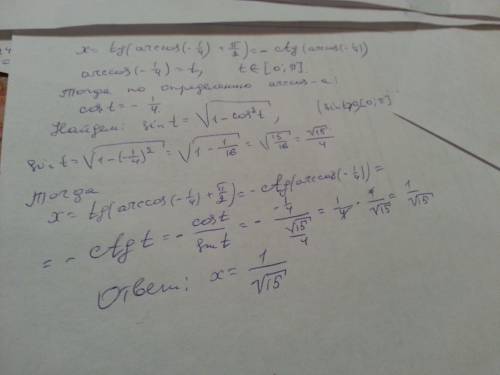 x = tg(arccos(-1/4) + π/2) = - ctg(arccos(-1/4))
arccos(-1/4) = t, t ∈ [0; π]
Тогда по определению arccos-a:
cos t = - 1/4
Найдем: sin t = √(1 - cos²t),
sin t = √(1 - (-1/4)²) = √(1 - 1/16) = √(15/16) = √15/4
Тогда
x = tg(arccos(-1/4) + π/2) = - ctg(arccos(-1/4)) =
= - ctg t = - cos t/sin t = - (-1/4)/(√15/4) = 1/4 · 4/√15 = 1/√15
Ответ: x = 1/√15